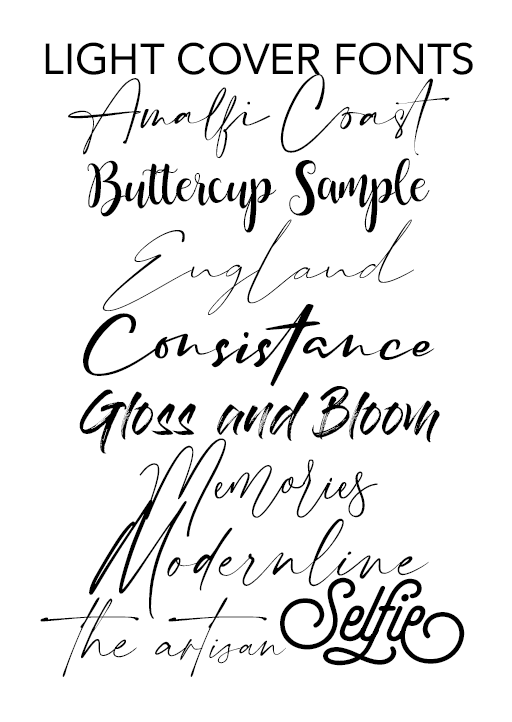 LIGHT COVER FONTS
Amalfi Coast
Buttercup Sample
England
Consistance
Gloss and Bloom
Memories
Modernline
Selfie
the artisan